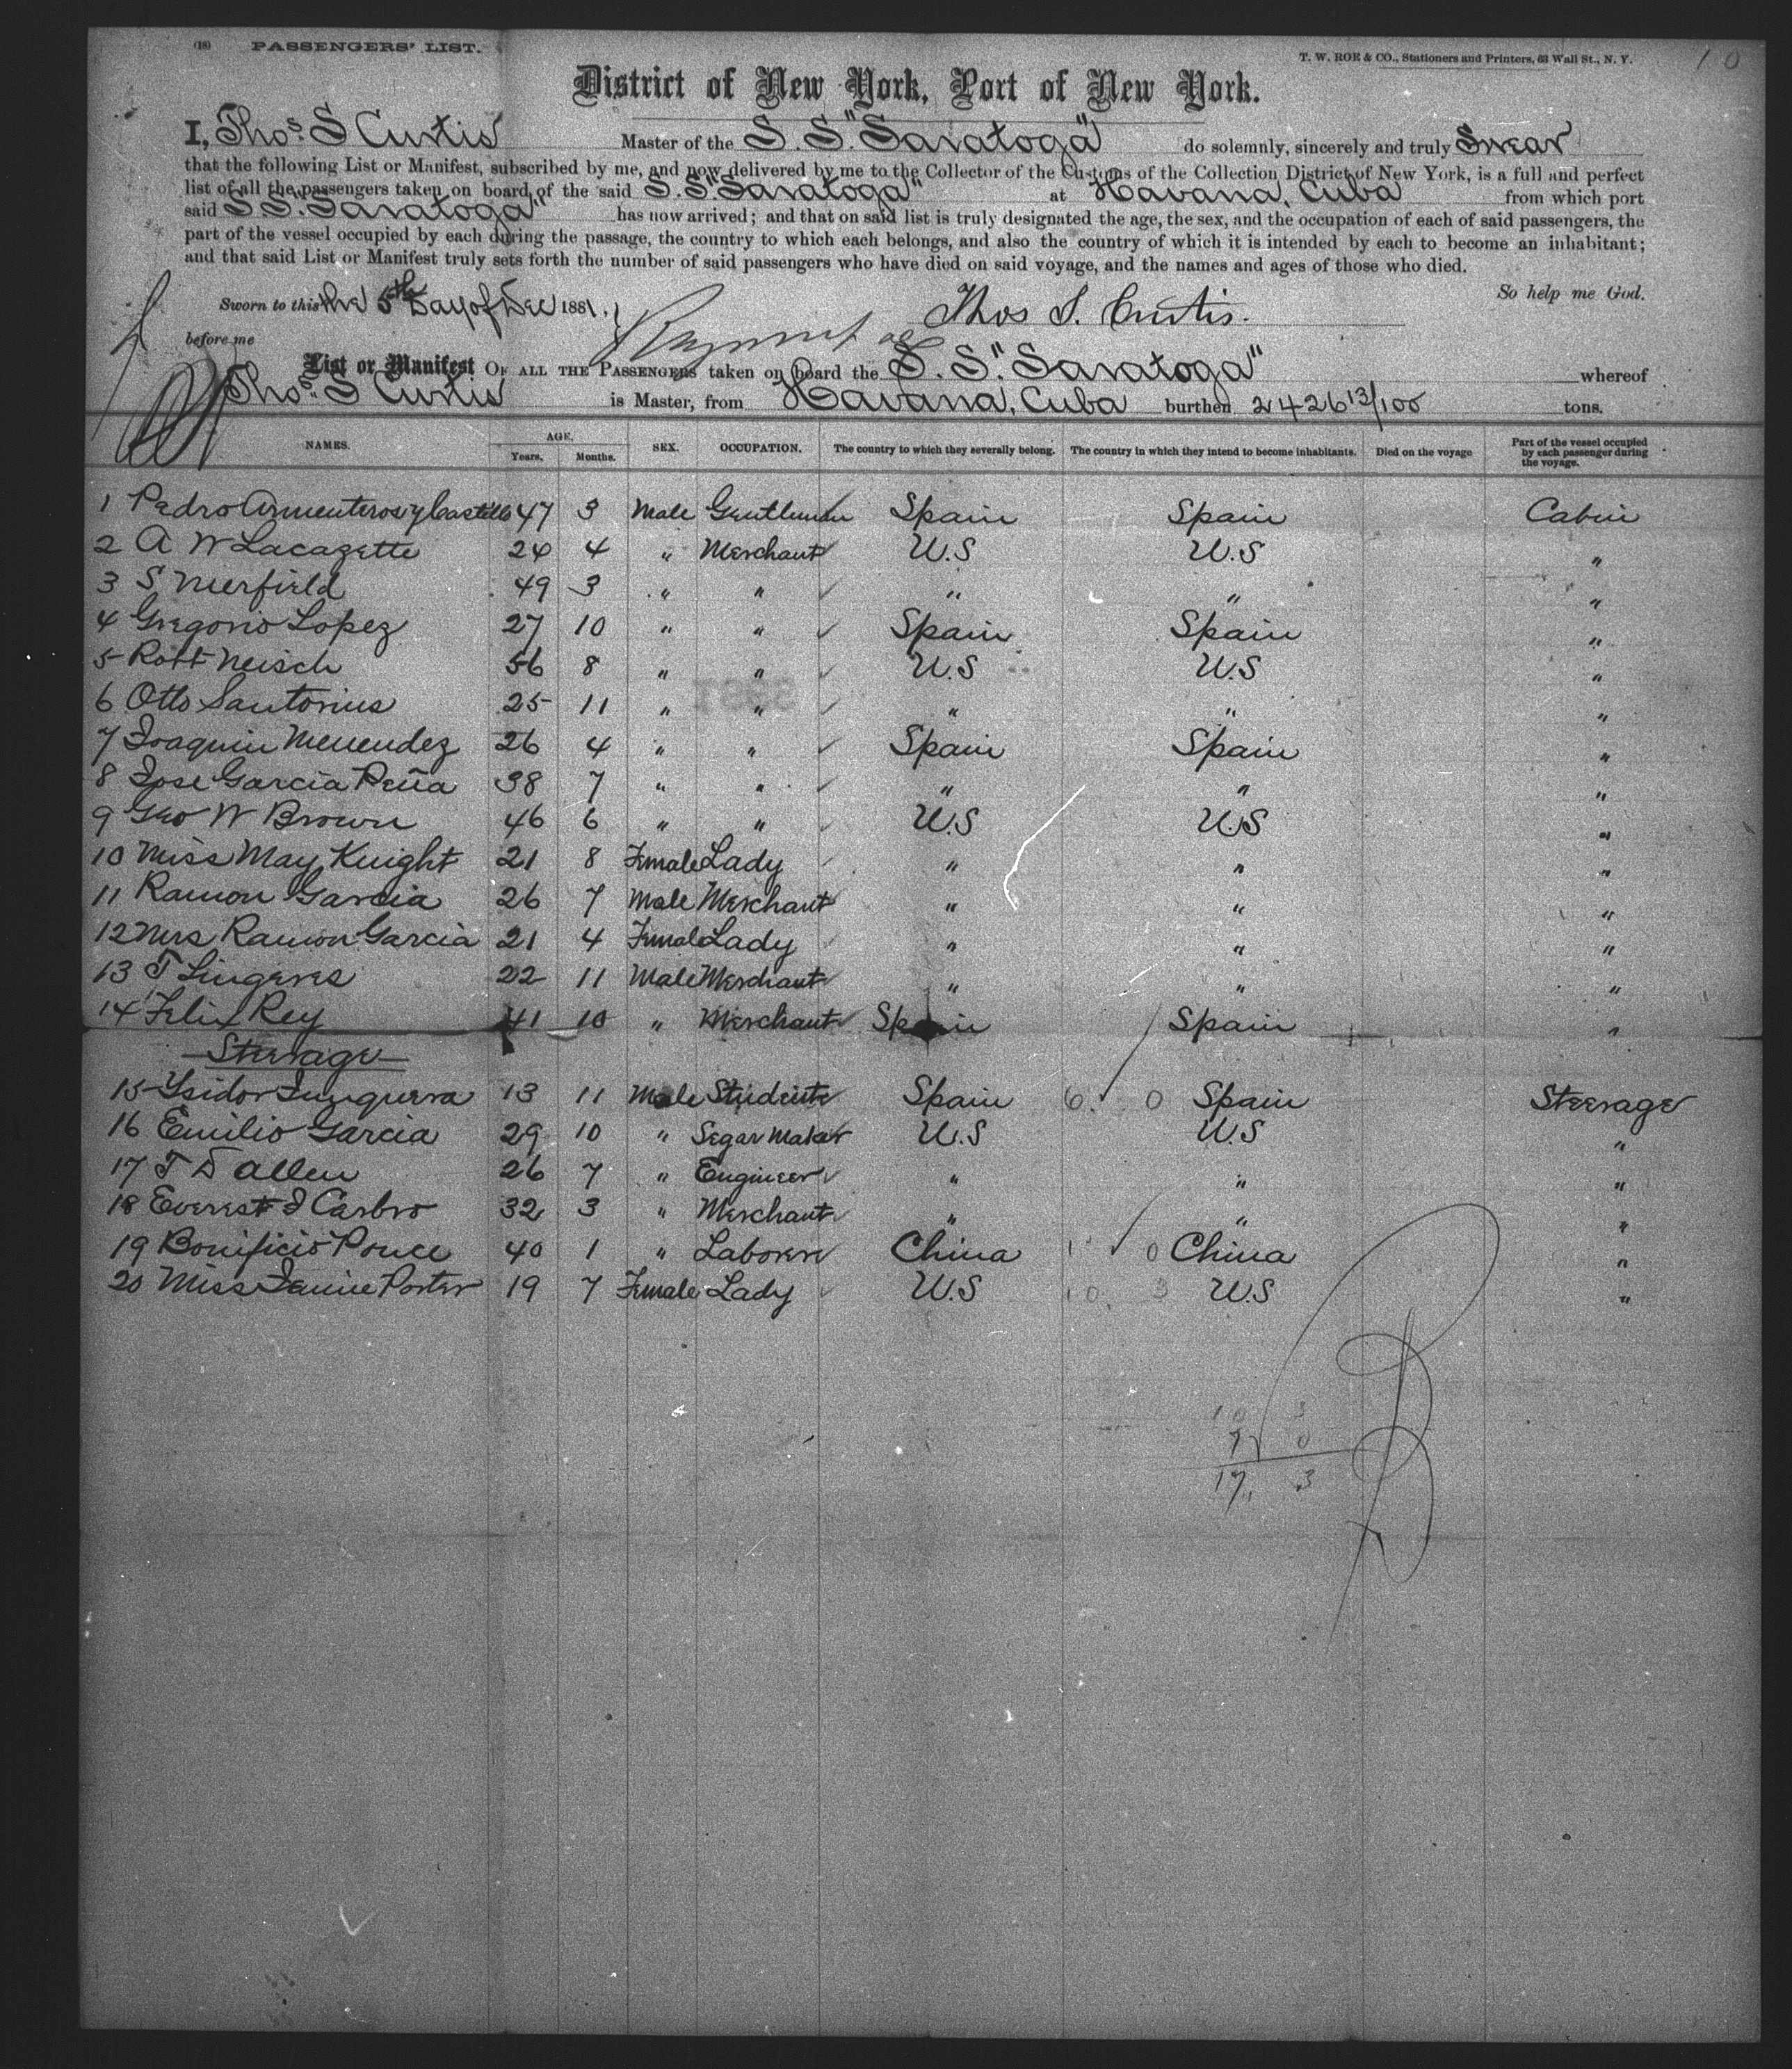 (18) PASSENGERS' LIST.
T. W. ROE & CO., Stationers and Printers, 63 Wall St., N. Y.
10
District of New York, Port of New York.
I, Thos. S Curtis Master of the S. S. "Saratoga" do solemnly, sincerely and truly Swear
that the following List or Manifest, subscribed by me, and now delivered by me to the Collector of the Customs of the Collection District of New York, is a full and perfect
list of all the passengers taken on board of the said S. S "Saratoga" at Havana, Cuba from which port
said S. S. "Saratoga" has now arrived; and that on said list is truly designated the age, the sex, and the occupation of each of said passengers, the
part of the vessel occupied by each during the passage, the country to which each belongs, and also the country of which it is intended by each to become an inhabitant;
and that said List or Manifest truly sets forth the number of said passengers who have died on said voyage, and the names and ages of those who died.
So help me God.
Sworn to this the 5th Day of Dec 1881. Thos S. Curtis.
before me
List or Manifest OF ALL THE PASSENGERS taken on board the S. S. "Saratoga" whereof
Thos. S Curtis is Master, from Havana, Cuba burthen 2426 13/100 tons.
NAMES. AGE. Years. Months. SEX. OCCUPATION. The country to which they severally belong. The country in which they intend to become inhabitants. Died on the voyage Part of the vessel occupied by each passenger during the voyage.
1 Pedro Armenteros y Castillo 47 3 Male Gentleman Spain Spain Cabin
2 A W Lacazette 24 4 " Merchant U.S U.S "
3 S Nierfield 49 3 " " " " "
4 Gregorio Lopez 27 10 " " Spain Spain "
5 Robt Neisch 56 8 " " U.S U.S "
6 Otto Santorius 25 11 " " " " "
7 Joaquin Menendez 26 4 " " Spain Spain "
8 Jose Garcia Peña 38 7 " " " " "
9 Geo W Brown 46 6 " " U.S U.S "
10 Miss May Knight 21 8 Female Lady " " "
11 Ramon Garcia 26 7 Male Merchant " " "
12 Mrs Ramon Garcia 21 4 Female Lady " " "
13 T Lingeres 22 11 Male Merchant " " "
14 Felix Rey 41 10 " Merchant Spain Spain "
Steerage
15 Ysidor Junquera 13 11 Male Student Spain 6. 0 Spain Steerage
16 Emilio Garcia 29 10 " Segar Maker U.S U.S "
17 T D Allen 26 7 " Engineer " " "
18 Everest S Carbro 32 3 " Merchant " " "
19 Bonificio Ponce 40 1 " Laborer China 1 0 China "
20 Miss Jennie Porter 19 7 Female Lady U.S 10. 3 U.S "
10 3
7 0
17 3